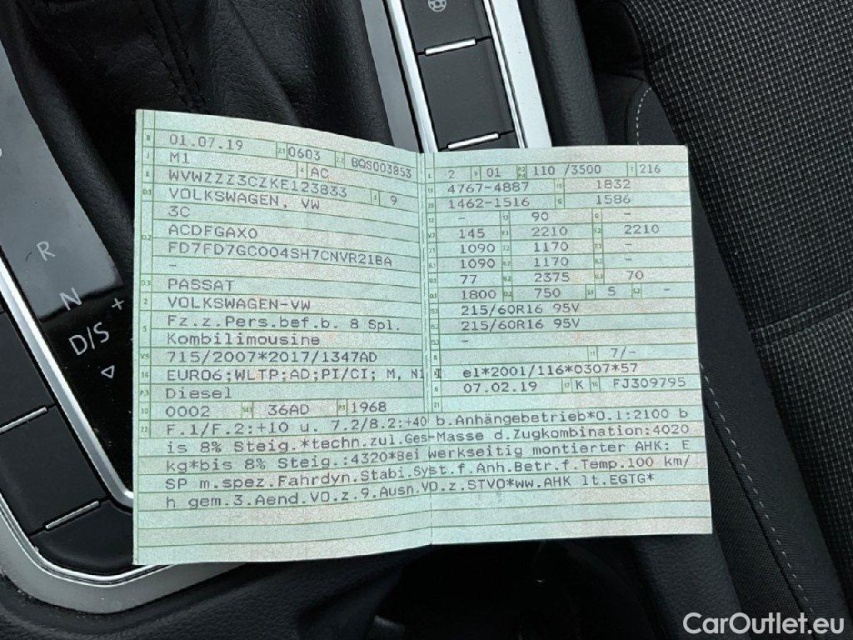 R
N
D/S
+
B 01.07.19 2.1 0603 2.2 BQS003853
J M1 4 AC
E WVWZZZ3CZKE123833 3 9
D.1 VOLKSWAGEN, VW
3C
D.2 ACDFGAX0
FD7FD7GC004SH7CNVR21BA
-
D.3 PASSAT
2 VOLKSWAGEN-VW
5 Fz.z.Pers.bef.b. 8 Spl.
Kombilimousine
V.9 715/2007*2017/1347AD
14 EURO6;WLTP;AD;PI/CI; M, N1 I
P.3 Diesel
10 0002 14.1 36AD P.1 1968
L 2 9 01 P.2 P.4 110 /3500 T 216
18 4767-4887 19 1832
20 1462-1516 G 1586
12 - 13 90 Q -
V.7 145 F.1 2210 F.2 2210
7.1 1090 7.2 1170 7.3 -
8.1 1090 8.2 1170 8.3 -
U.1 77 U.2 2375 U.3 70
O.1 1800 O.2 750 S.1 5 S.2 -
15.1 215/60R16 95V
15.2 215/60R16 95V
15.3 -
R 11 7/-
K e1*2001/116*0307*57
6 07.02.19 17 K 16 FJ309795
21
22 F.1/F.2:+10 u. 7.2/8.2:+40 b.Anhängebetrieb*0.1:2100 b
is 8% Steig.*techn.zul.Ges-Masse d.Zugkombination:4020
kg*bis 8% Steig.:4320*Bei werkseitig montierter AHK: E
SP m.spez.Fahrdyn.Stabi.Syst.f.Anh.Betr.f.Temp.100 km/
h gem.3.Aend.VO.z.9.Ausn.VO.z.STVO*ww.AHK lt.EGTG*
CarOutlet.eu